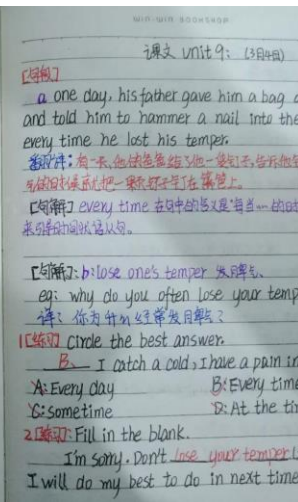 WIN-WIN BOOKSHOP
课文 unit 9: (3月4日)
[句组]
a one day, his father gave him a bag
and told him to hammer a nail into the
every time he lost his temper.
翻译: 有一天,他的爸爸给了他一袋钉子,告诉他
的时候就把一颗钉子钉在篱笆上。
[句解] every time 在句中的含义是"每当…的
来引导时间状语从句。
[句解]: b: lose one's temper 发脾气.
eg: why do you often lose your temp
译: 你为什么经常发脾气?
1[练习] circle the best answer.
B. I catch a cold, I have a pain in
A: Every day B: Every time
C: sometime D: At the ti
2[练习]: Fill in the blank.
I'm sorry. Don't lose your temper
I will do my best to do in next time